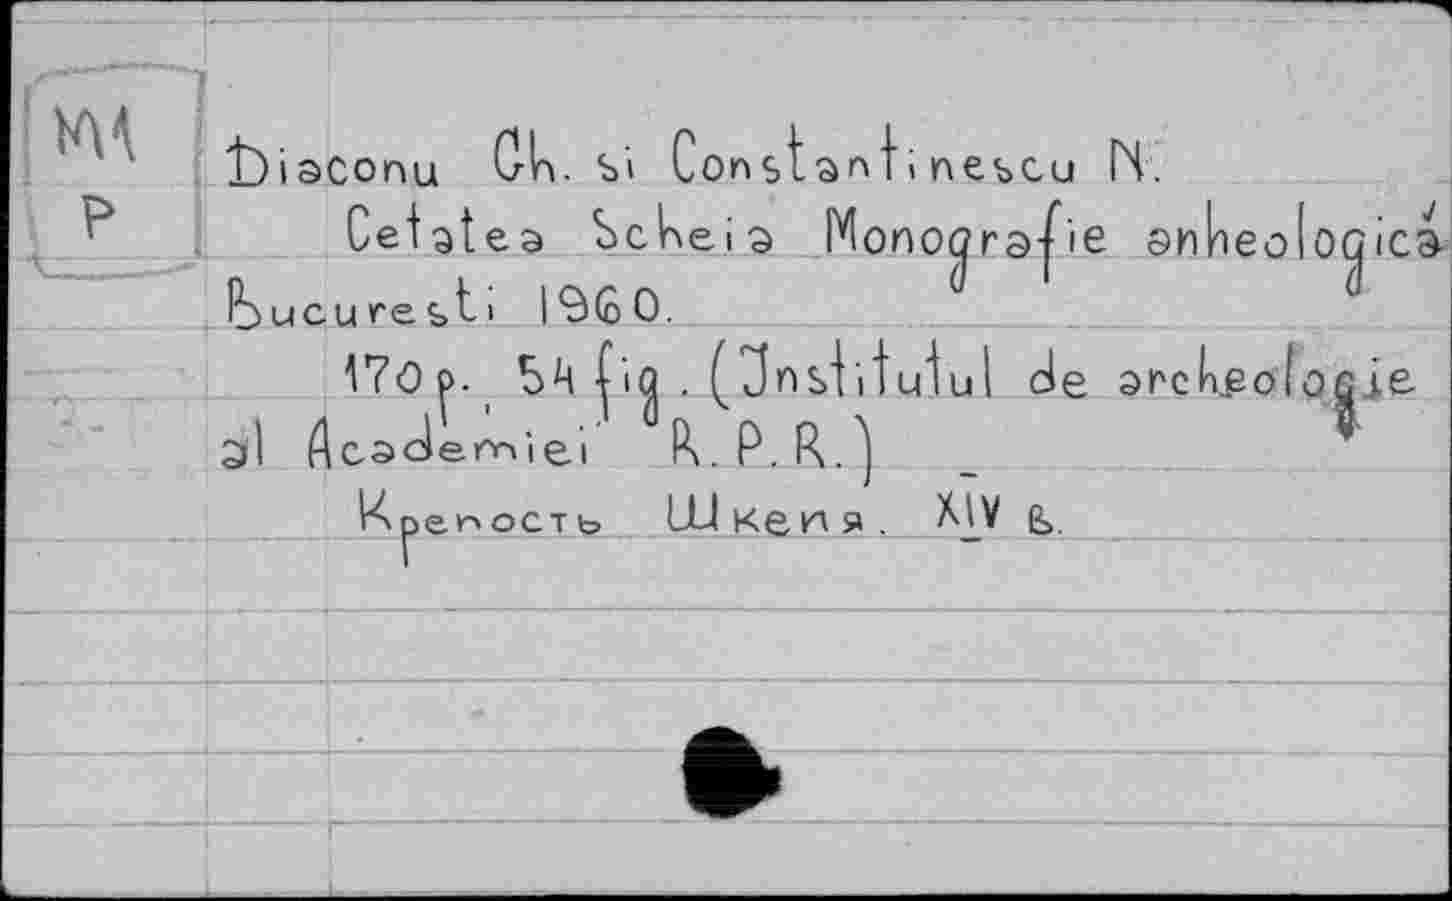 КМ
P
Diaconu Gh. si Constantinescu N.
Cetatea Scheia Monografie anheologică
Bucuresti 1960.
170 p. 54 fig. (Institutul de archeologie
al Academiei R.P.R.)
Крепость Шкепя. XIV в.